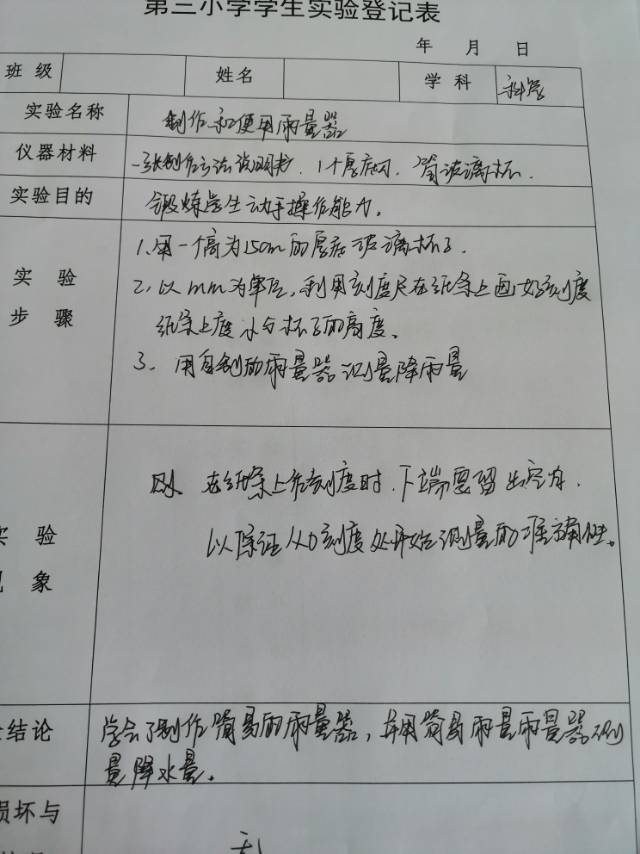 第三小学学生实验登记表
年 月 日
班 级 姓名 学 科 科学
实验名称 制作和使用雨量器
仪器材料 一张制作方法说明书、1个厚底的、筒玻璃杯.
实验目的 锻炼学生动手操作能力.
1、用一个高为15cm的厚底玻璃杯子.
实 验 2、以mm为单位,利用刻度尺在纸条上画好刻度
步 骤 纸条上度 杯子的高度、
3、用自制的雨量器 测量降雨量
在纸条上 刻度时.下端要留出空白.
实 验 以保证从0刻度处开始测量的准确性。
象
结论 学会了制作简易的雨量器,并用简易雨量雨量器测
量降水量。
损坏与
无